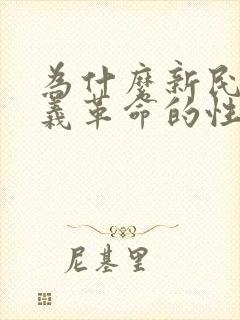 为什麼新民
義革命的性
尼基里